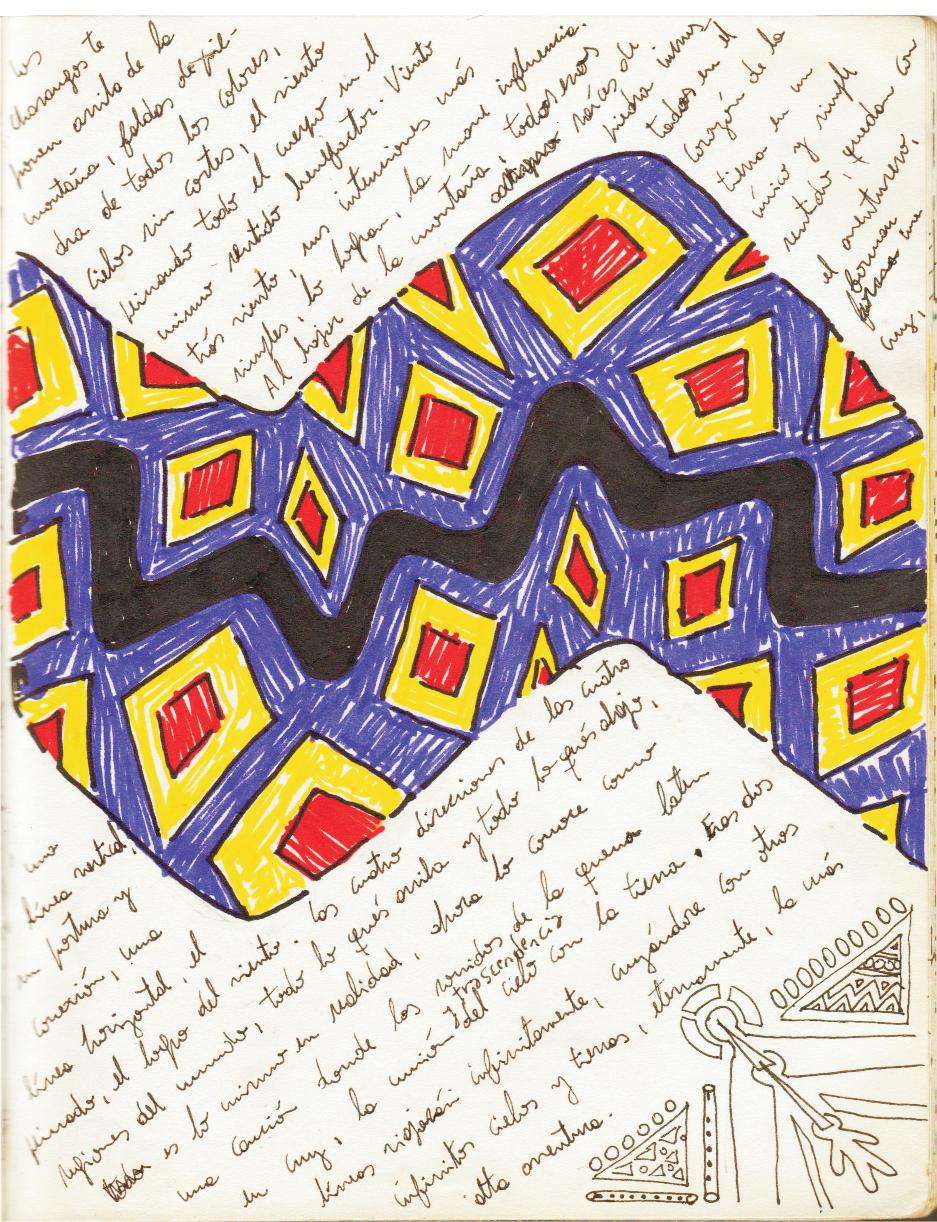 Los
charangos te
ponen arriba de la
montaña, faldas de pie-
dra de todos los colores,
cielos sin cortes, el viento
peinando todo el cuerpo en el
mismo sentido benefactor. Viento
trás viento, sus intenciones más
simples, lo logran, la influencia.
Al bajar de la montaña todos esos
raíces de
piedra
todos en el
corazón de la
tierra en un
único y simple
sentido, quedan con
el aventurero,
forman una
cruz,
una
línea vertical,
su postura y
conexión, una
línea horizontal, el
peinado, el logro del viento. Las cuatro direcciones de los cuatro
regiones del mundo, todo lo qués arriba y todo lo qués abajo,
todo es lo mismo en realidad, ahora lo conoce como
una canción donde los sonidos de la quena laten
en cruz, la unión trascendencia del cielo con la tierra. Esas dos
líneas viajarán infinitamente, cruzándose con otros
infinitos cielos y tierras, eternamente, la más
alta aventura.